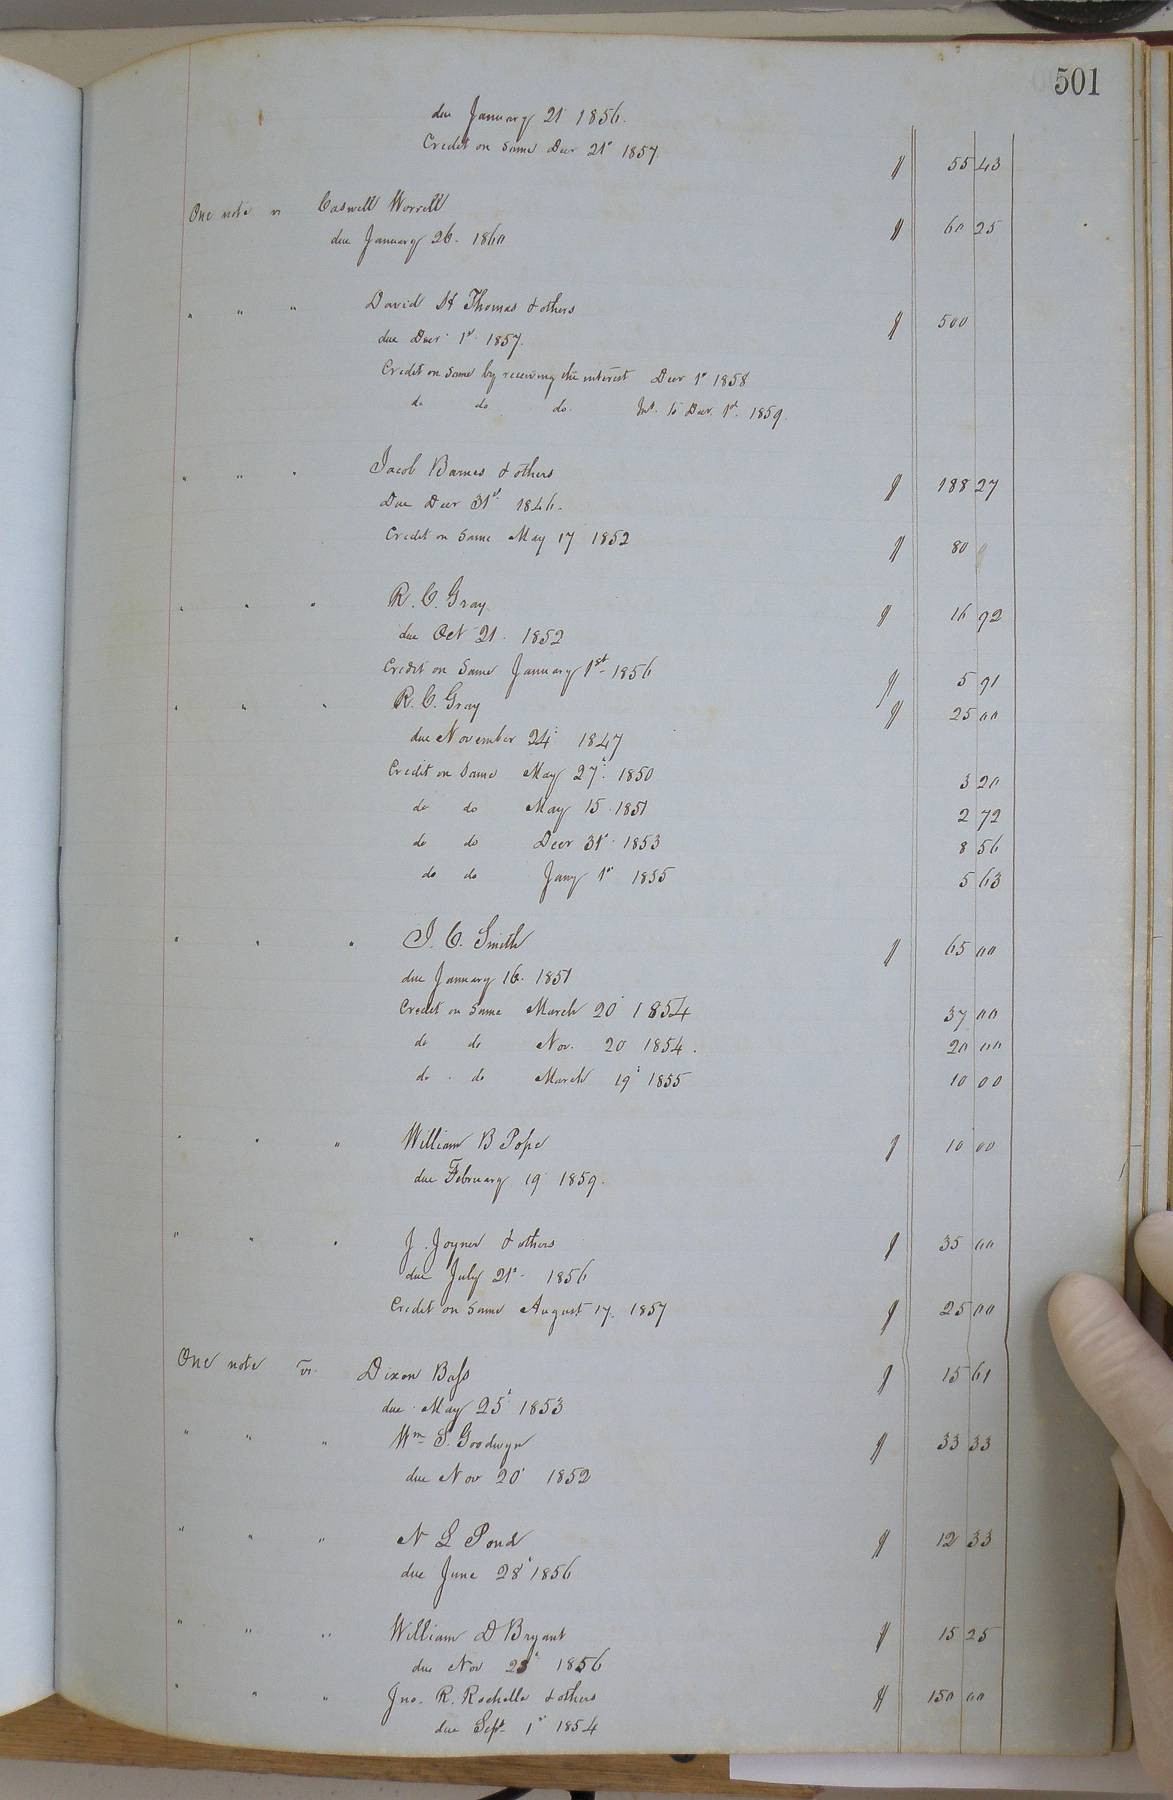 501
due January 21 1856.
Credit on Same Decr 21st 1857. $ 55 43
One note vs Caswell Worrell
due January 26. 1860 $ 60 25
" " " David H Thomas & others $ 500
due Decr 1st 1857.
Credit on Same by receiving the interest Decr 1st 1858
do do do. Int. to Decr. 1st. 1859.
" " " Jacob Barnes & others $ 188 27
Due Decr 31st 1846.
Credit on Same May 17 1852 $ 80
" " " R. C. Gray $ 16 92
due Oct 21. 1852
Credit on Same January 1st 1856 $ 5 91
" " " R. C. Gray $ 25 00
due November 24th 1847
Credit on Same May 27th. 1850 3 20
do do May 15. 1851 2 72
do do Decr 31st. 1853 8 56
do do Jany 1st 1855 5 63
" " " J. C. Smith $ 65 00
due January 16. 1851
Credit on Same March 20th 1854 37 00
do do Nov. 20 1854. 20 00
do do March 19th 1855 10 00
" " " William B Pope $ 10 00
due February 19 1859.
" " " J. Joyner & others $ 35 00
due July 21st. 1856
Credit on Same August 17. 1857 $ 25 00
One note vs. Dixon Bass $ 15 61
due May 25th 1853
" " " Wm S. Goodwyn $ 33 33
due Nov 20th 1852
" " " N L Pond $ 12 33
due June 28th 1856
" " " William D Bryant $ 15 25
due Nov 1856
" " " Jno. R. Rochelle & others $ 150 00
due Sept 1st 1854